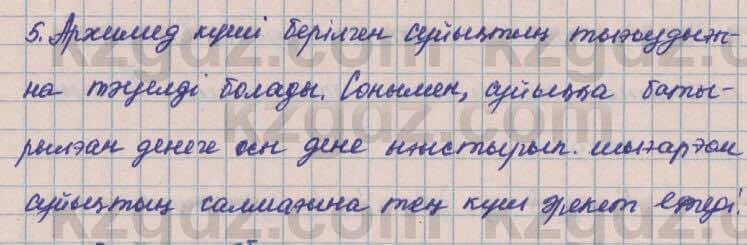 5. Архимед күші берілген сұйықтың тығыздығы-
на тәуелді болады. Сонымен, сұйыққа баты-
рылған денеге осы дене ығыстырып шығарған
сұйықтың салмағына тең күш әрекет етеді.